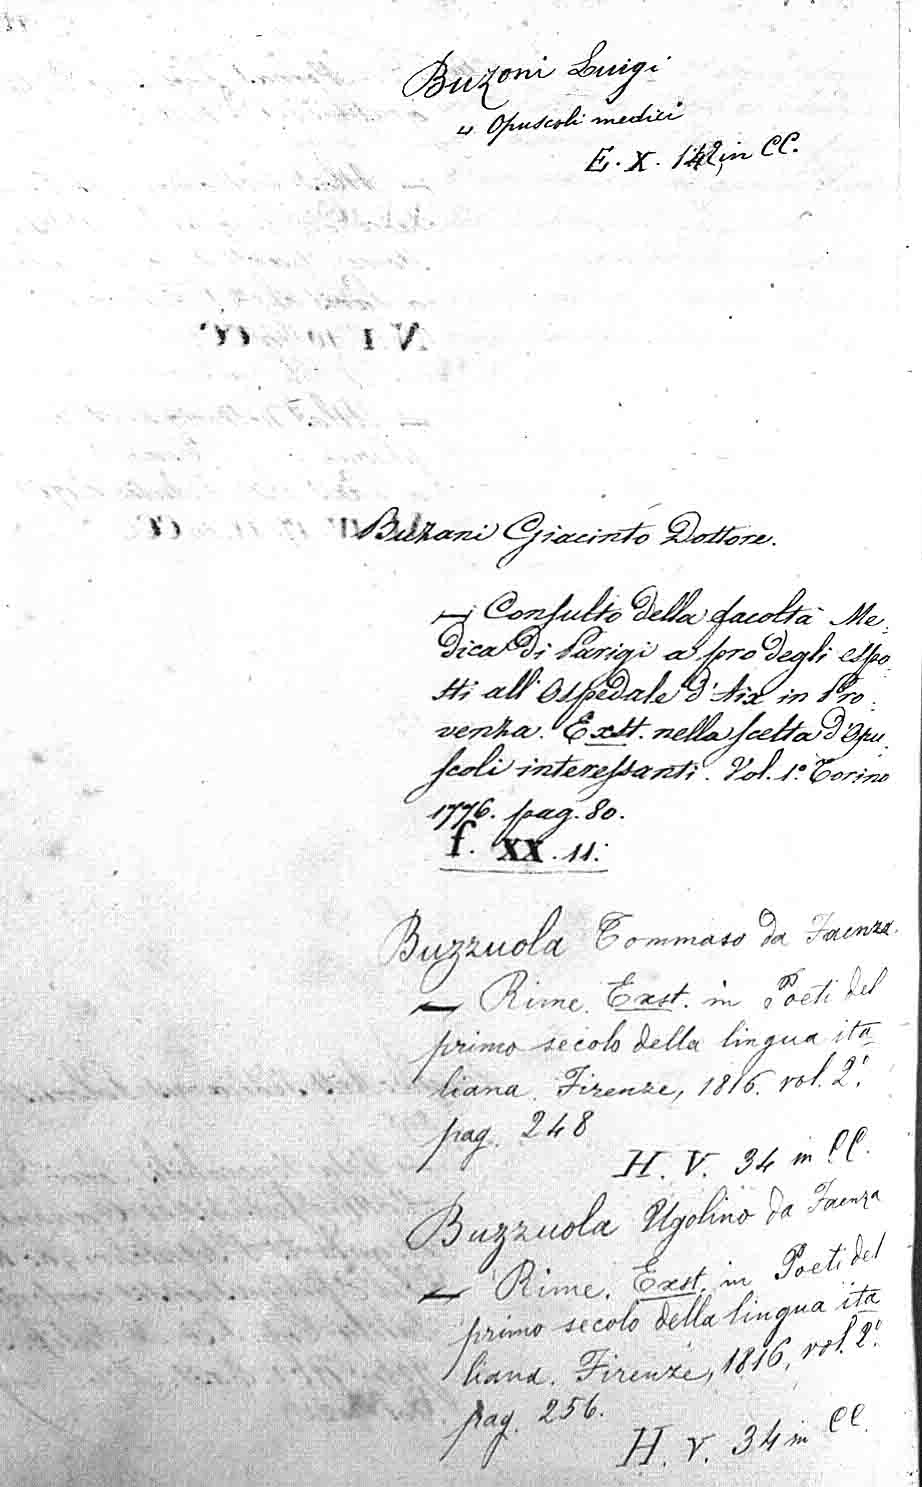 Buzoni Luigi
4 Opuscoli medici
E. X. 142, in CC.
Buzani Giacinto Dottore.
— Consulto della facoltà Me-
dica di Parigi a pro degli espo-
sti all' Ospedale d'Aix in Pro-
venza. Exst. nella scelta d'Opu-
scoli interessanti. Vol. 1.° Torino
1776. pag. 80.
f. XX. 11.
Buzzuola Tommaso da Faenza.
— Rime. Exst. in Poeti del
primo secolo della lingua ita
liana. Firenze, 1816. vol. 2.°
pag. 248
H. V. 34 in CC.
Buzzuola Ugolino da Faenza
— Rime. Exst. in Poeti del
primo secolo della lingua ita
liana. Firenze, 1816, vol. 2.°
pag. 256.
H. V. 34 in CC.